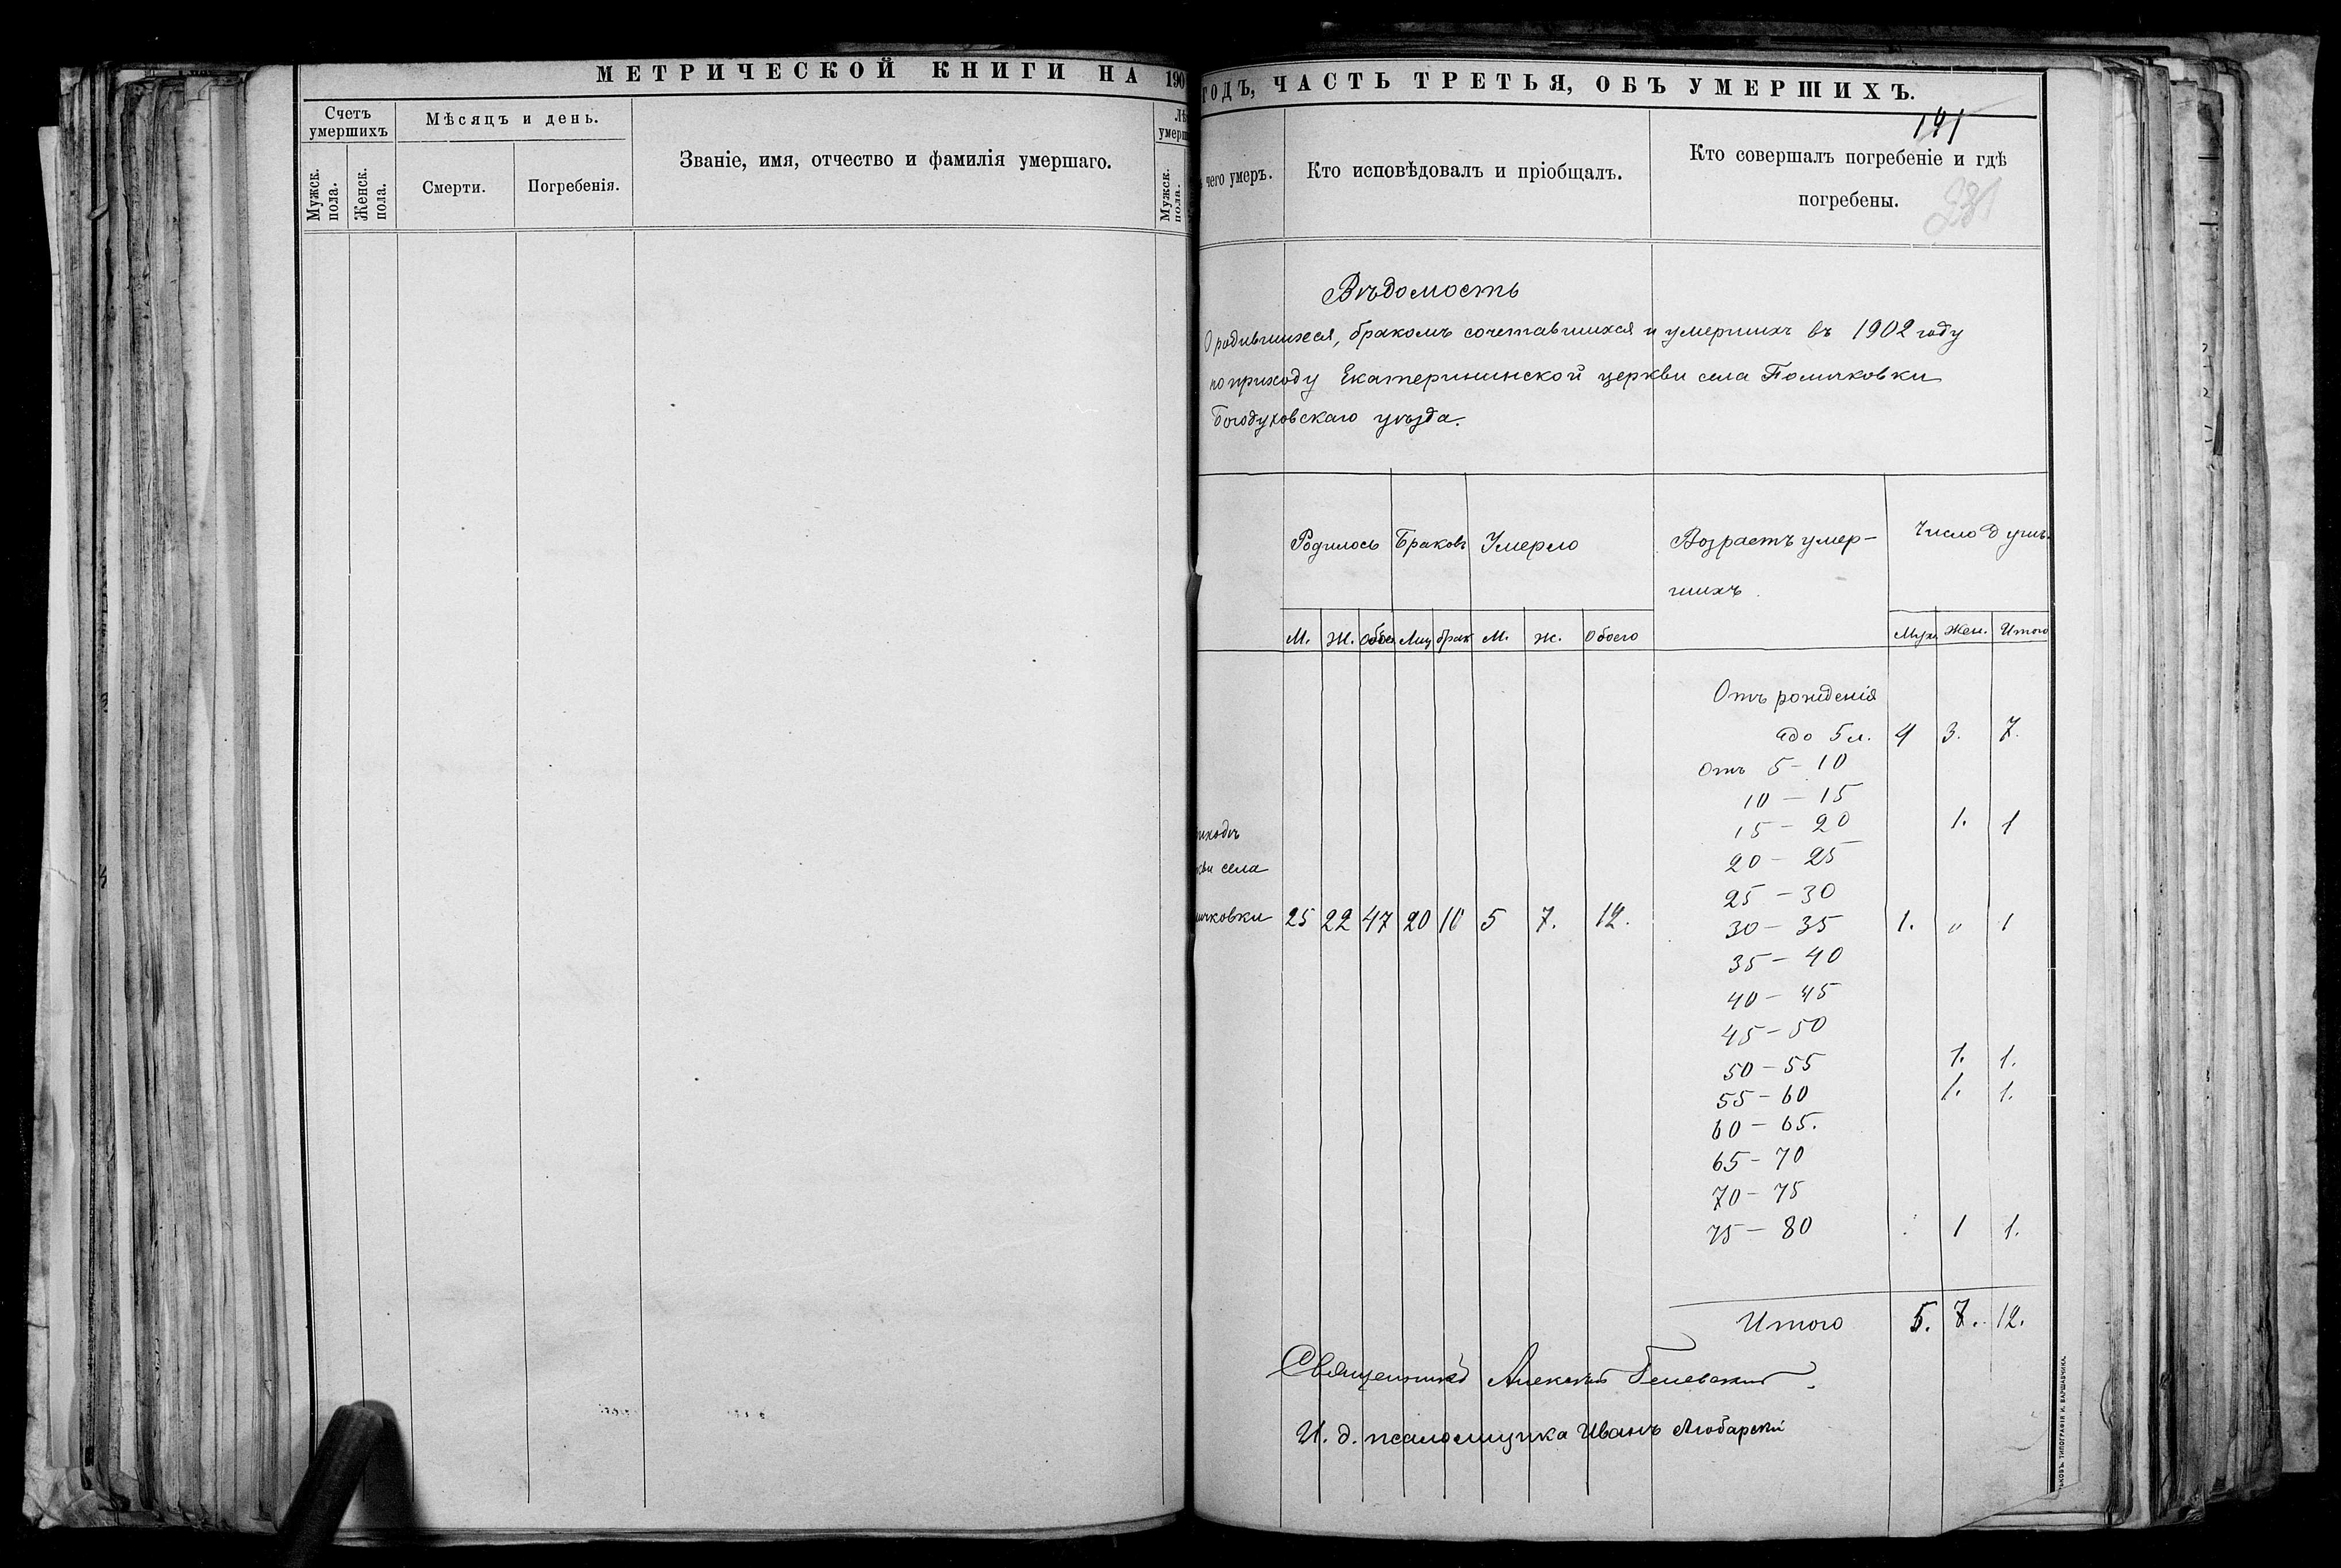 МЕТРИЧЕСКОЙ КНИГИ НА 190
Счетъ умершихъ
Мѣсяцъ и день.
Званіе, имя, отчество и фамилія умершаго.
Мужск. пола.
Женск. пола.
Смерти.
Погребенія.
Мужск. пола.
ГОДЪ, ЧАСТЬ ТРЕТЬЯ, ОБЪ УМЕРШИХЪ.
чего умеръ.
Кто исповѣдовалъ и пріобщалъ.
Кто совершалъ погребеніе и гдѣ
погребены.
Вѣдомость
О родившихся, бракомъ сочетавшихся и умершихъ въ 1902 году
по приходу Екатерининской церкви села
Богодуховскаго уѣзда.
Родилось Браковъ Умерло Возрастъ умер- Число душъ.
шихъ
М. Ж. Обоего Лиц брак М. Ж. Обоего Муж. Жен. Итого
Отъ рожденія
до 5 л. 4 3. 7.
Отъ 5 – 10
10 – 15
15 – 20 1. 1
20 – 25
25 – 30
села
25 22 47 20 10 5 7. 12. 30 – 35 1. " 1
35 – 40
40 – 45
45 – 50
50 – 55 1. 1.
55 – 60 1. 1.
60 – 65.
65 – 70
70 – 75
75 – 80 1 1.
Итого 5. 7. 12.
Священникъ Алексій
И. д. псаломщика Иванъ Любарскій
ТИПОГРАФІЯ И. ВАРШАВЧИКА.